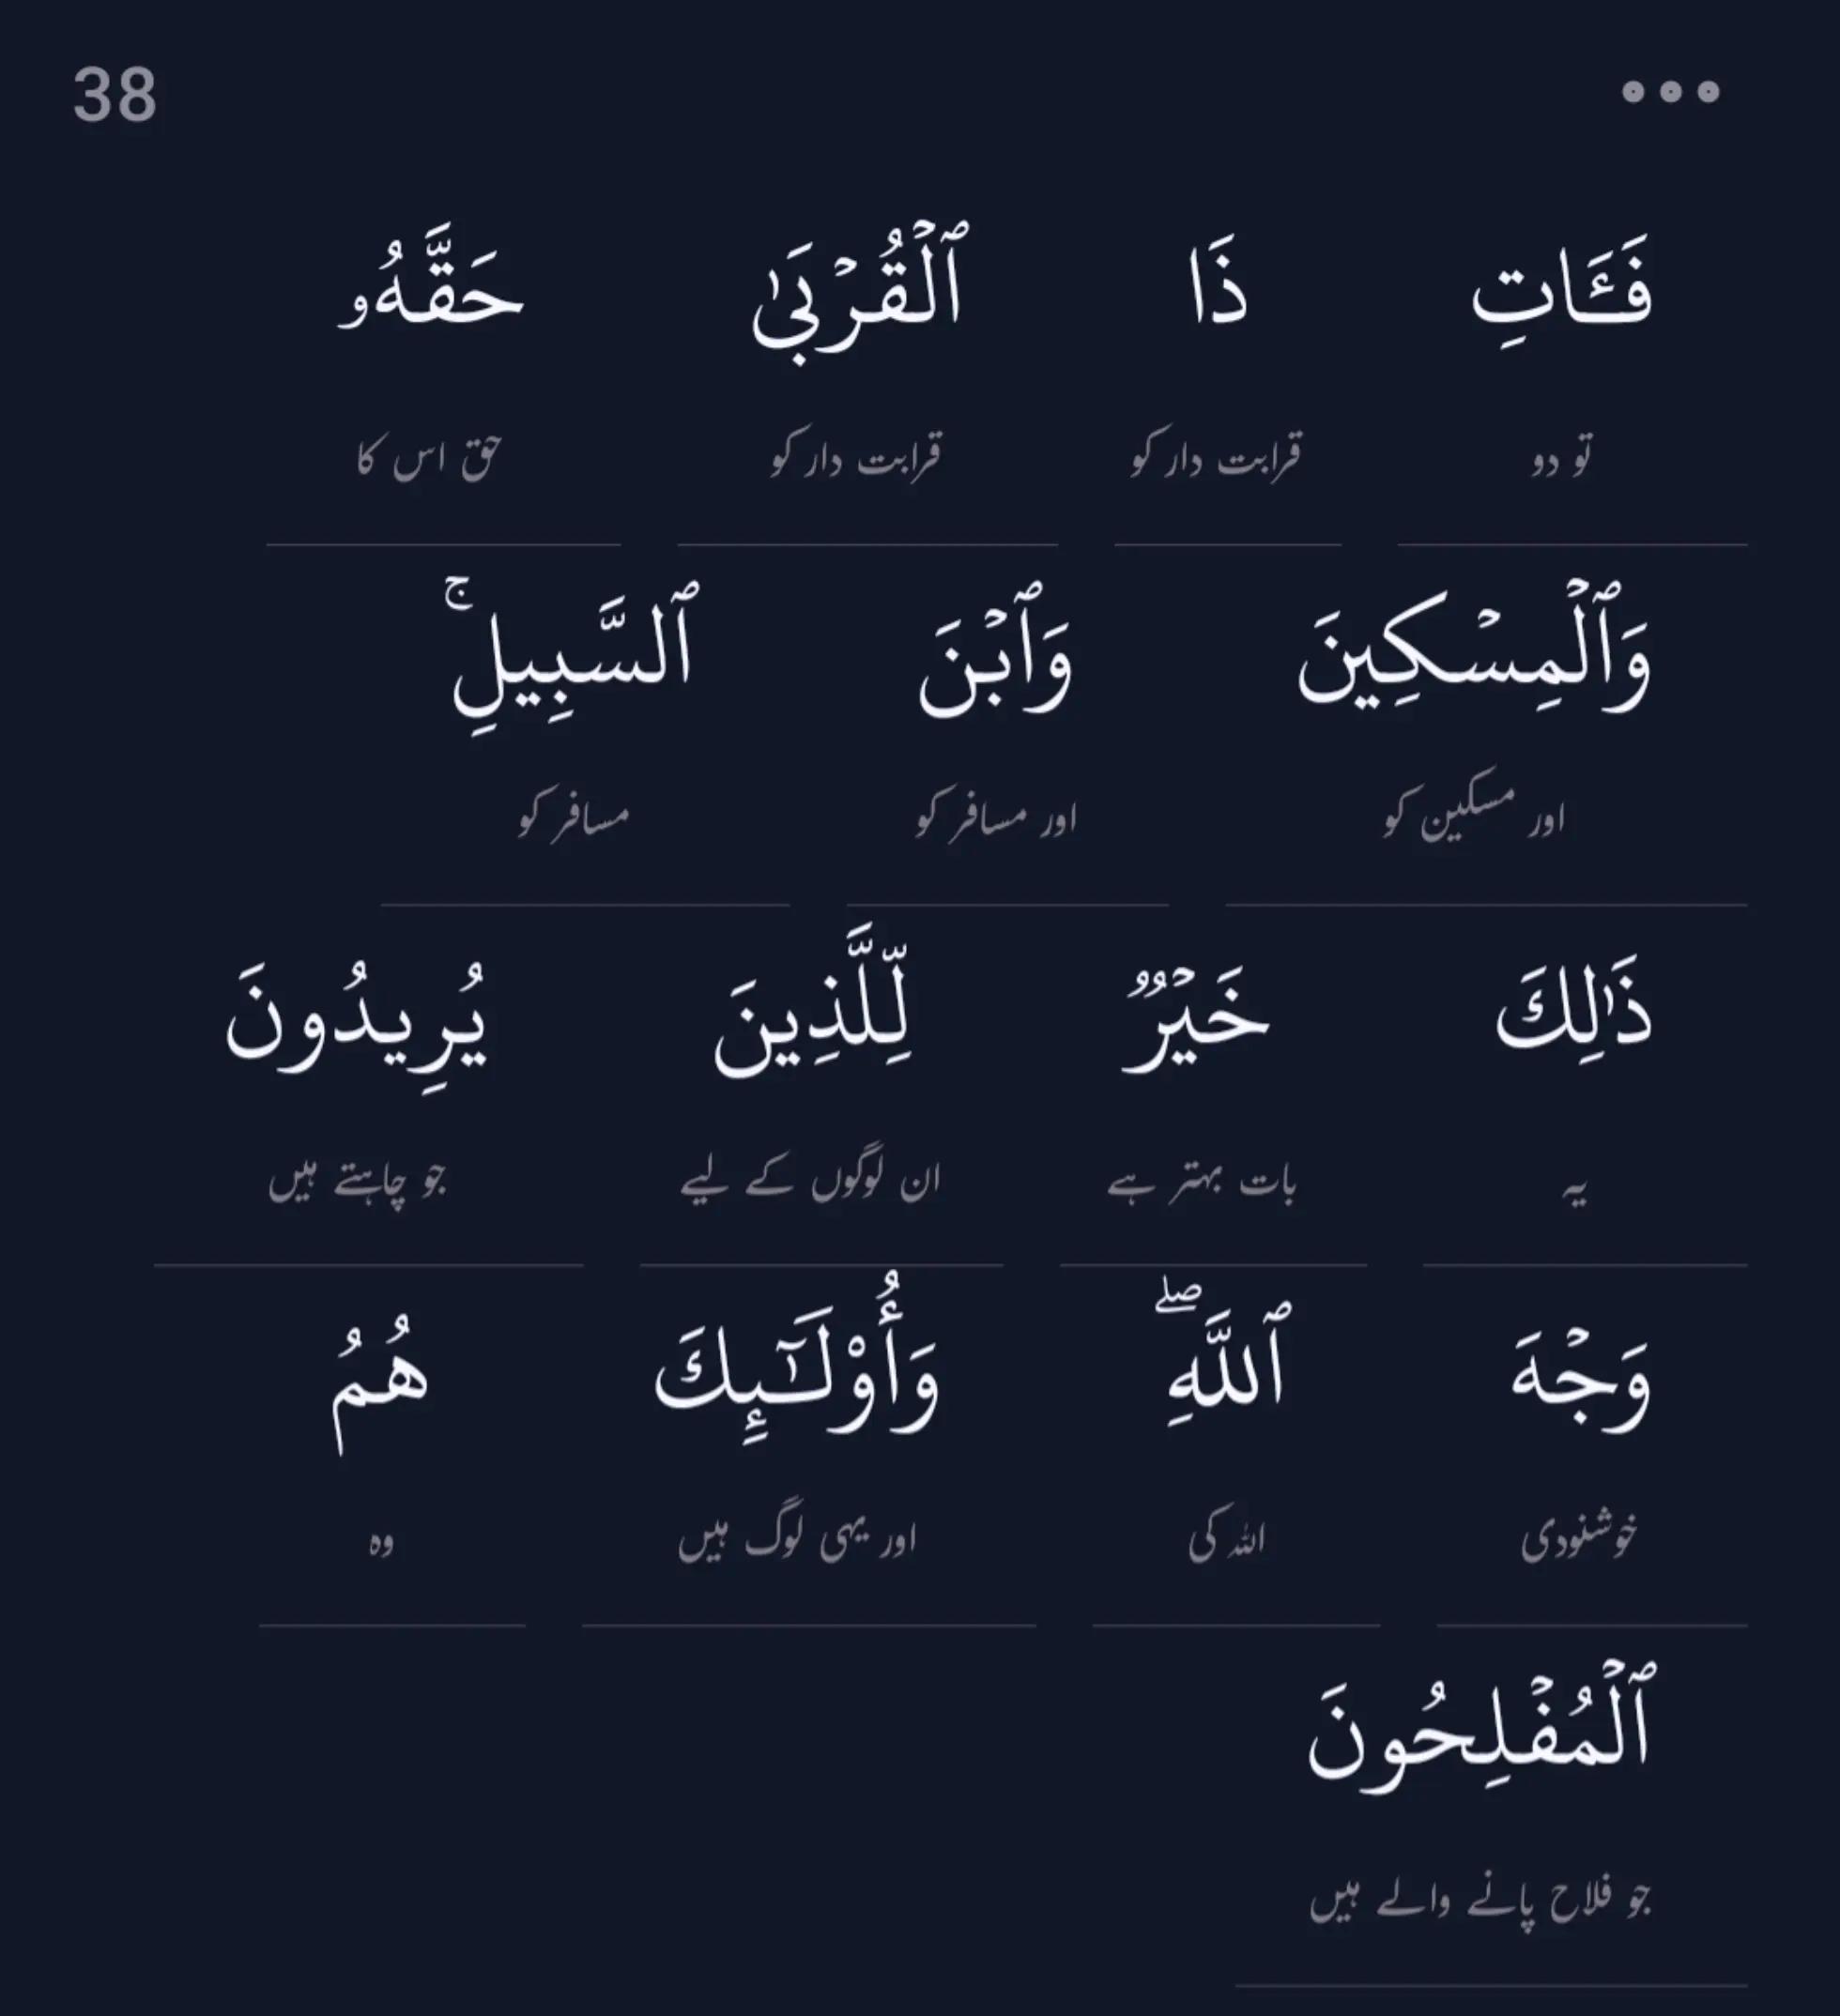 38
فَـَٔاتِ ذَا ٱلۡقُرۡبَىٰ حَقَّهُۥ
تو دو قرابت دار کو قرابت دار کو حق اس کا
وَٱلۡمِسۡكِينَ وَٱبۡنَ ٱلسَّبِيلِۚ
اور مسکین کو اور مسافر کو مسافر کو
ذَٰلِكَ خَيۡرٞ لِّلَّذِينَ يُرِيدُونَ
یہ بات بہتر ہے ان لوگوں کے لیے جو چاہتے ہیں
وَجۡهَ ٱللَّهِۖ وَأُوْلَـٰٓئِكَ هُمُ
خوشنودی اللہ کی اور یہی لوگ ہیں وہ
ٱلۡمُفۡلِحُونَ
جو فلاح پانے والے ہیں